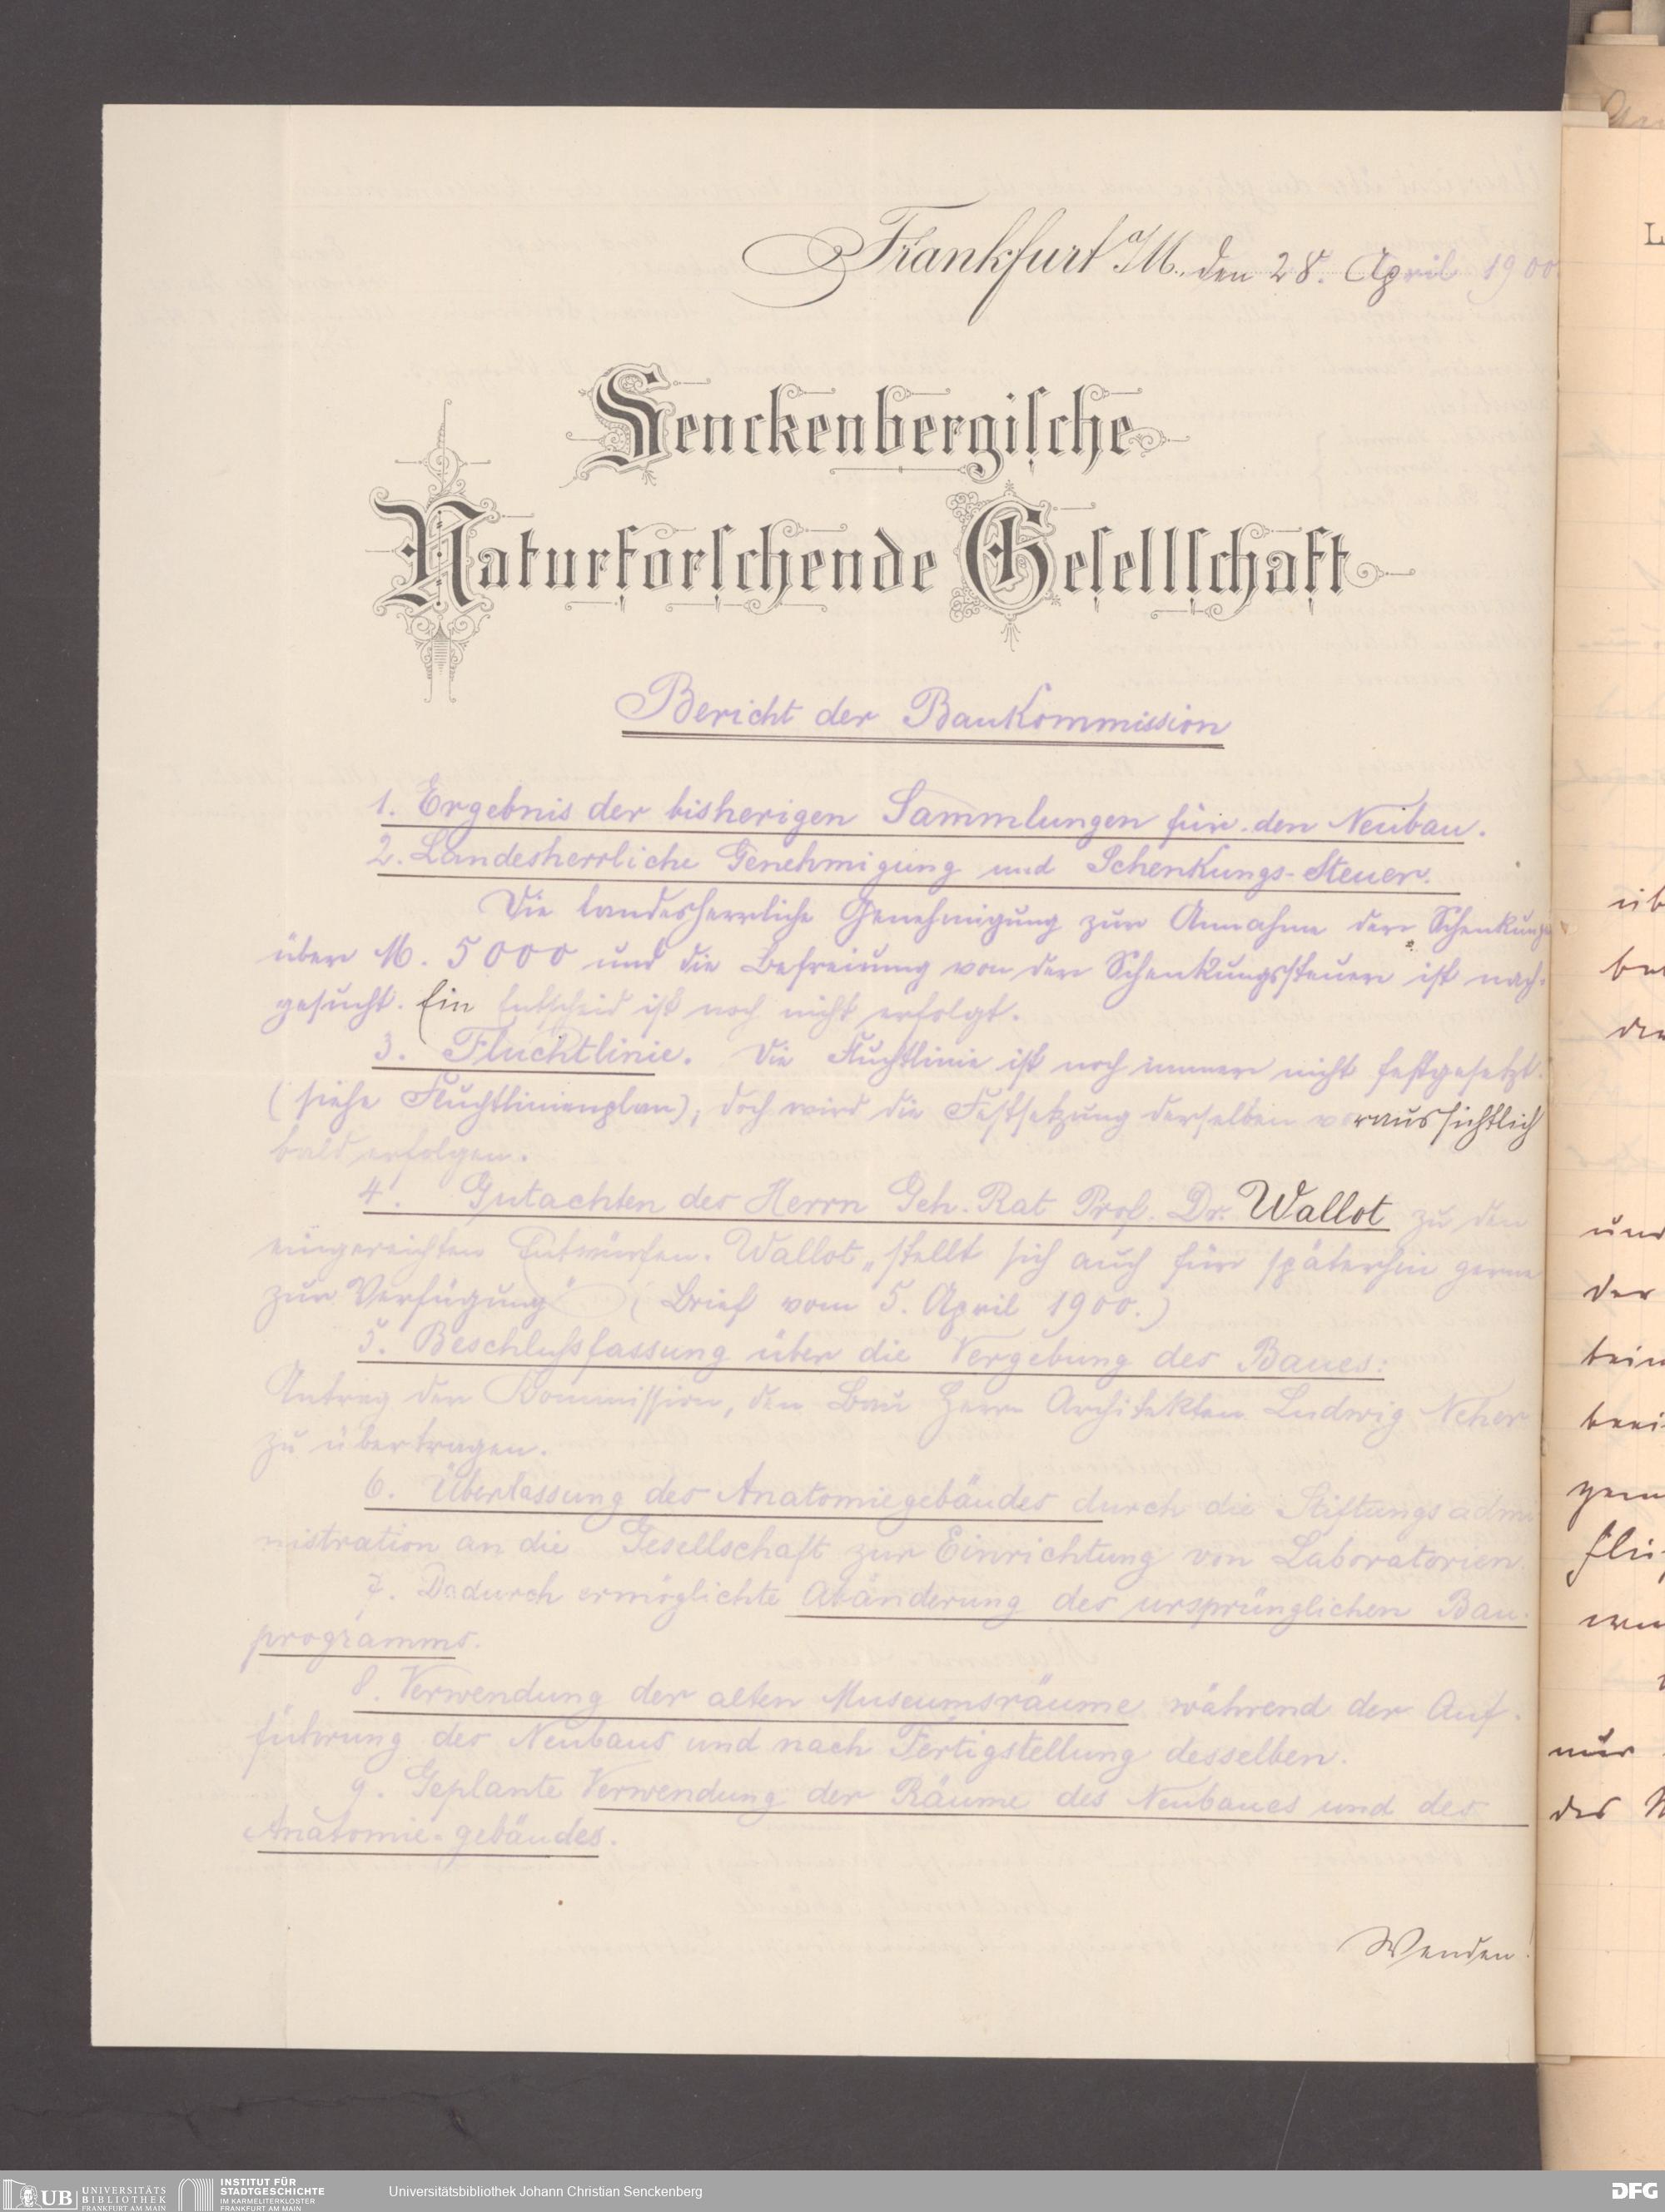 Frankfurt a/M., den 28. April 1900.
Senckenbergische
Naturforschende Gesellschaft
Bericht der Baukommission
1. Ergebnis der bisherigen Sammlungen für den Neubau.
2. Landesherrliche Genehmigung und Schenkungs-Steuer.
Die landesherrliche Genehmigung zur Annahme der Schenkungen
über M. 5000 und die Befreiung von der Schenkungssteuer ist nach-
gesucht. Ein Entscheid ist noch nicht erfolgt.
3. Fluchtlinie. Die Fluchtlinie ist noch immer nicht festgesetzt.
(siehe Fluchtlinienplan), doch wird die Festsetzung derselben voraussichtlich
bald erfolgen.
4. Gutachten des Herrn Geh. Rat Prof. Dr. Wallot zu den
eingereichten Entwürfen. Wallot „stellt sich auch für späterhin gerne
zur Verfügung" (Brief vom 5. April 1900.)
5. Beschlußfassung über die Vergebung des Baues:
Antrag der Kommission, den Bau Herrn Architekten Ludwig Neher
zu übertragen.
6. Überlassung des Anatomiegebäudes durch die Stiftungsadmi
nistration an die Gesellschaft zur Einrichtung von Laboratorien.
7. Dadurch ermöglichte Abänderung des ursprünglichen Bau-
programms.
8. Verwendung der alten Museumsräume während der Auf-
führung des Neubaus und nach Fertigstellung desselben.
9. Geplante Verwendung der Räume des Neubaues und des
Anatomie-gebäudes.
Wenden!
L
und
der
nur
des
UB UNIVERSITÄTS BIBLIOTHEK FRANKFURT AM MAIN
INSTITUT FÜR STADTGESCHICHTE IM KARMELITERKLOSTER FRANKFURT AM MAIN
Universitätsbibliothek Johann Christian Senckenberg
DFG